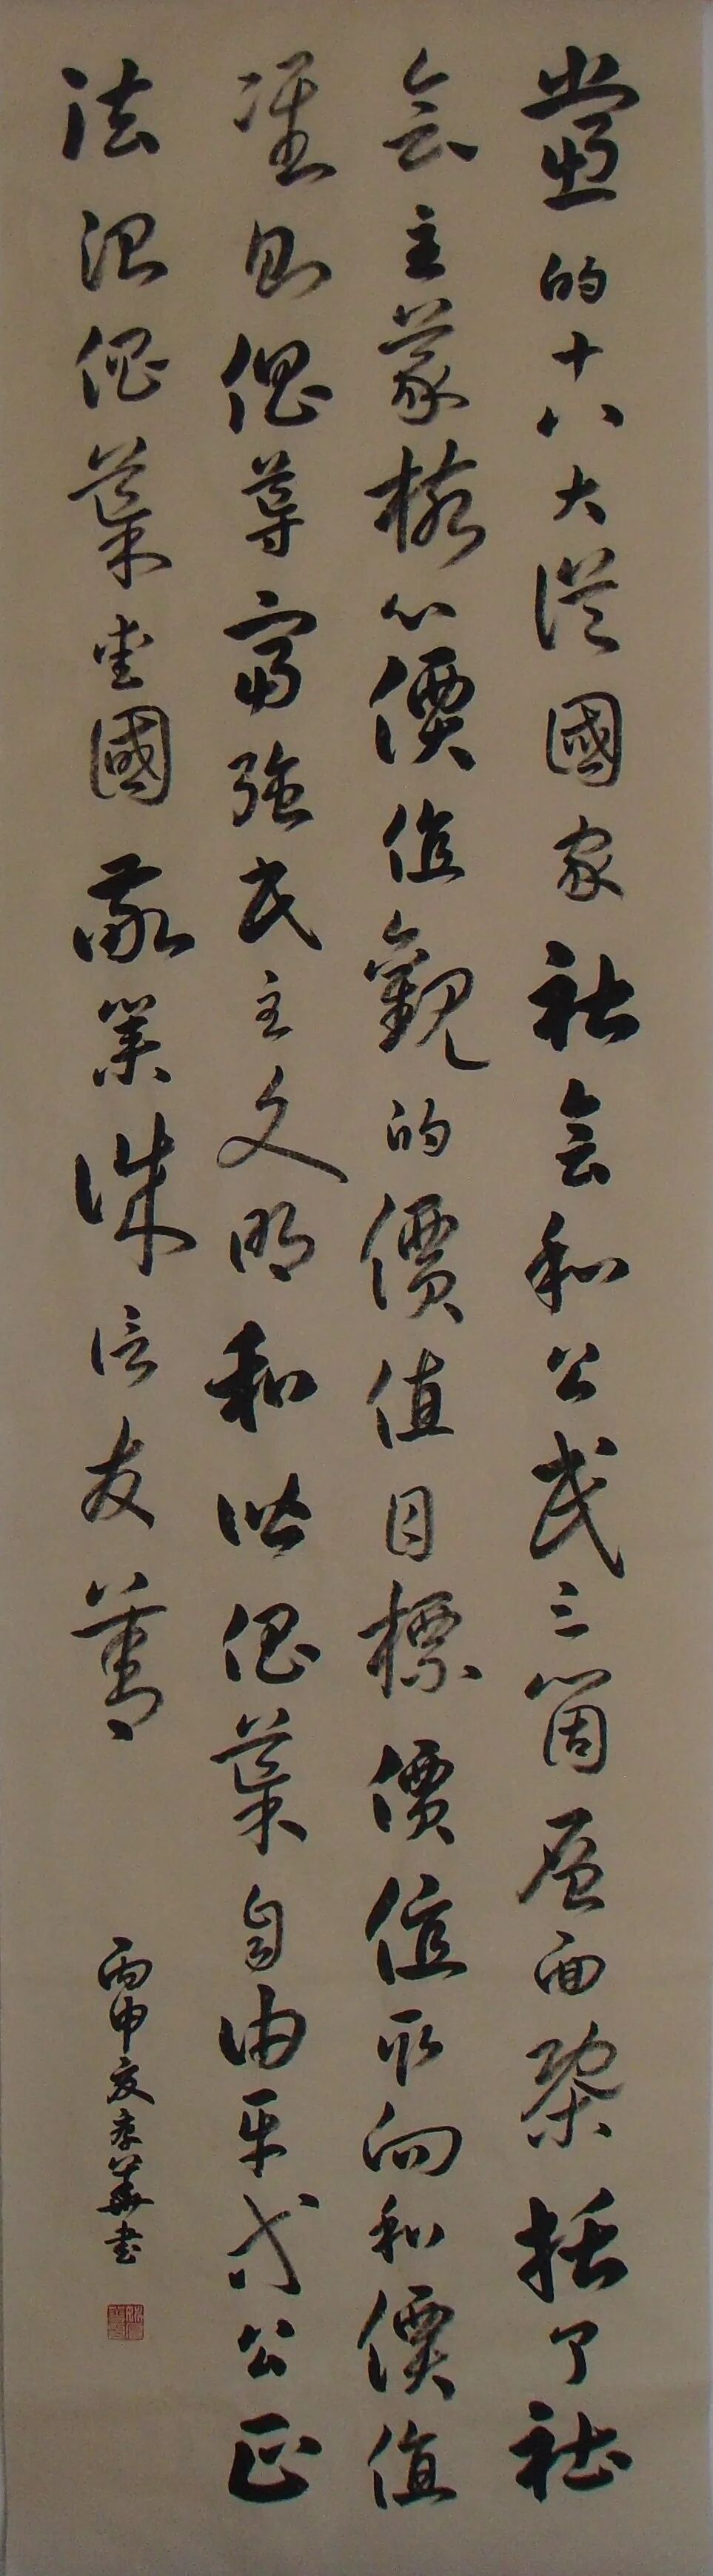 党的十八大從國家社会和公民三個层面槩括了社
会主義核心價值觀的價值目標價值取向和價值
準则倡導富強民主文明和谐倡葉自由平等公正
法治倡葉爱國敬業诚信友善
丙申夏李華书